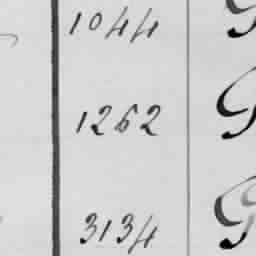 1044 G
1262 G
3134 G